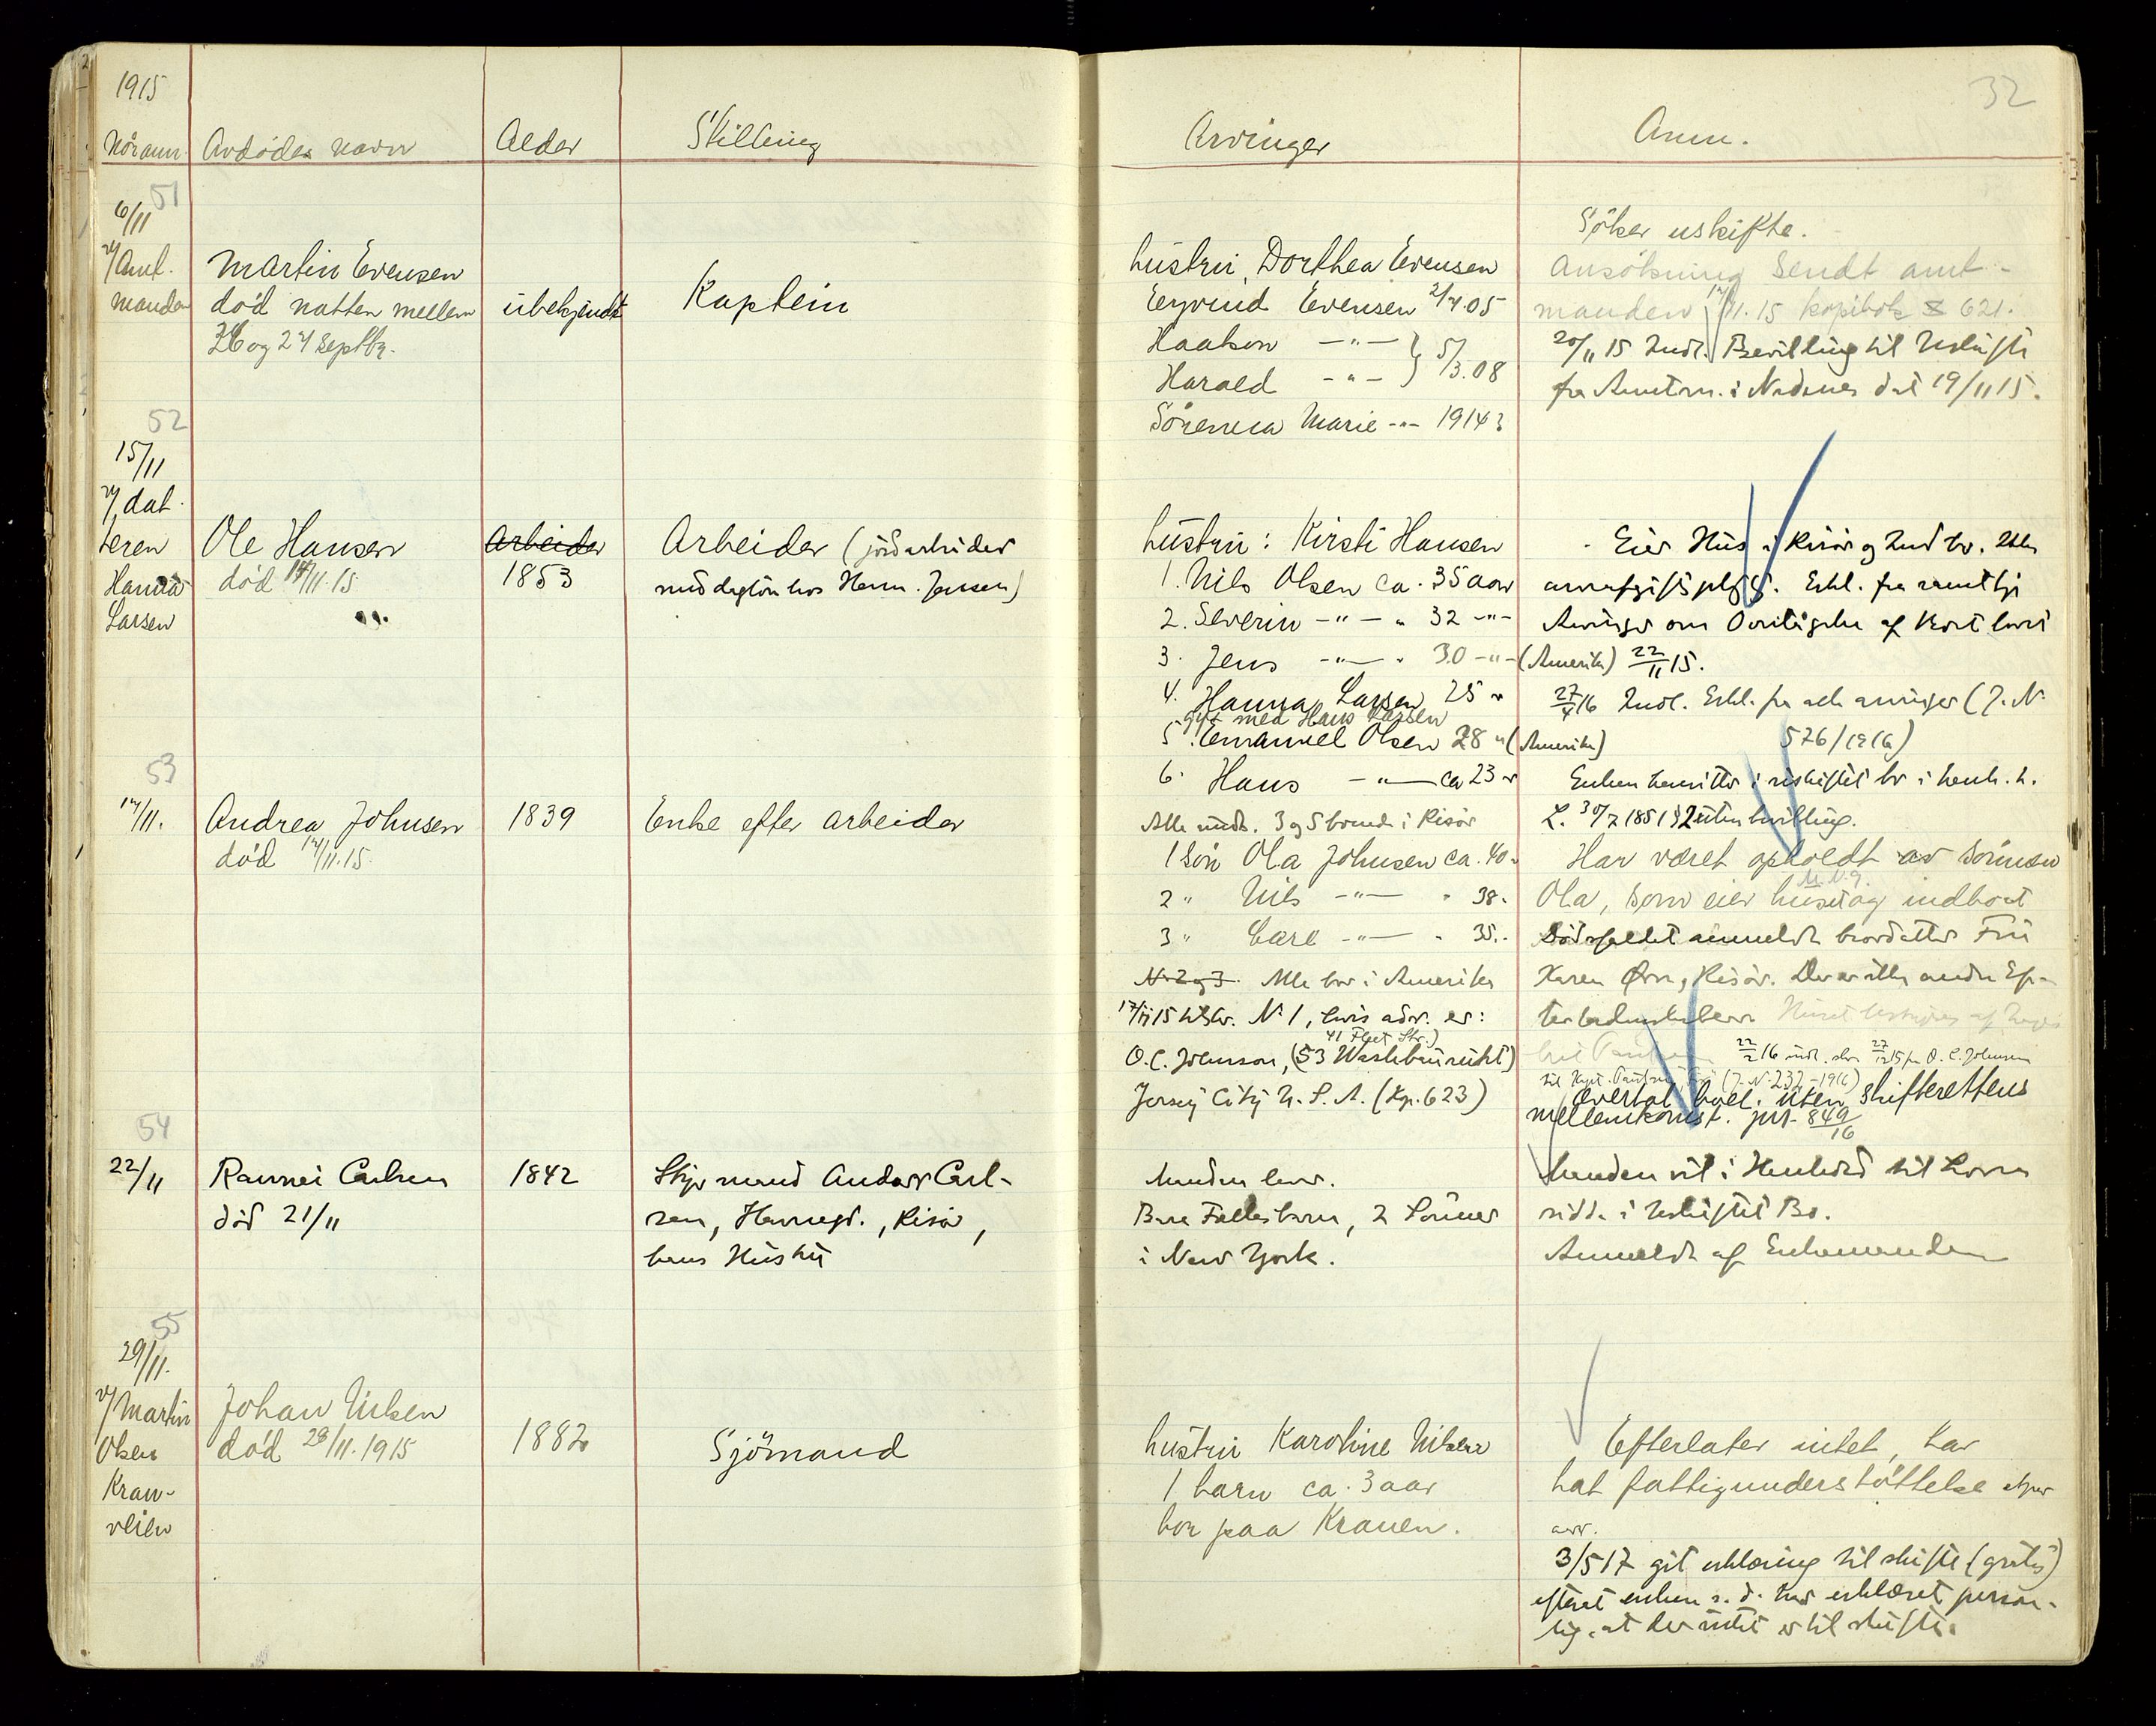 1915
32
Når anm. Avdødes navn Alder Stilling Arvinger Anm.
51
6/11
v/ Amt.
manden
Martin Evensen
död natten mellem
26 og 27 Septbr.
ubekjendt
Kaptein
hustru Dorthea Evensen
Eyvind Evensen 2/4 05
Haakon —"— } 5/3.08
Harald —"—
Sörenea Marie -"- 1914?
Söker uskifte.
Ansökning sendt amt-
manden 11.15 kopibok 621.
20/11 15 Indl. Bevilling til Uskifte
fra Amtm. i Nedenes dat 19/11 15.
52
15/11
v/ dat-
teren
Hanna
Larsen
Ole Hansen
död 14/11.15
Arbeider
1853
Arbeider (jordarbeider
med daglön hos Herm. Jensen)
hustru: Kirsti Hansen
1. Nils Olsen ca. 35 aar
2. Severin —"— " 32 —"—
3. Jens —"— " 30 —"— (Amerika)
4. Hanna Larsen 25 "
gift med Hans Larsen
5. Emanuel Olsen 28 " (Amerika)
6. Hans —"— ca 23 "
Alle undt. 3 og 5 boende i Risör
Eier Hus i Risör og Indbo. Ikke
arveafgiftspligtig. Erkl. fra samtlige
Arvinger om Overtagelse af Boet
22/11 15.
27/4 16 Indl. Erkl. fra alle arvinger (J. N.
576/1916)
Enken hensitter i uskiftet bo i henh. t.
L. 30/7 1851 § 2 uten bevilling.
53
17/11.
Andrea Johnsen
död 14/11.15.
1839
Enke efter arbeider
1 Sön Ola Johnsen ca. 40 "
2 " Nils —"— " 38 "
3 " Carl —"— " 35 "
No 2 og 3 Alle bor i Amerika
17/11 15 tilskr. No 1, hvis adr. er:
41 Fleet Str.)
O.C. Johnson, (53 Washburn
Jersey City U.S.A. (Kp. 623)
Har været opholdt av sönnen
Ola, som eier hus og indbo
Dödsfaldet anmeldt av Fru
Karen Örn, Risör. Der er ikke andre Ef-
terladenskaber
22/2 16 indl. skr. 27/12 15 fra O.C. Johnsen
(J. N. 232-1916)
Overtat boet uten skifterettens
mellemkomst. jnr. 849/16
54
22/11
Rannei Carlsen
död 21/11
1842
Styrmand Anders Carl-
sen, Havnegd., Risör,
hans Hustru
Manden lever.
Bare Fællesbarn, 2 Sönner
i New York.
Manden vil i Henhold til Loven
sidde i Uskiftet Bo.
Anmeldt af Enkemanden
55
29/11.
v/ Martin
Olsen
Kran-
veien
Johan Nilsen
död 28/11.1915
1882
Sjömand
hustru Karoline Nilsen
1 barn ca. 3 aar
bor paa Kranen.
Efterlater intet, har
hat fattigunderstöttelse
3/5 17 git erklæring til skifte (gratis)
efterat enken s.d. har erklæret person-
lig, at der intet er til skifte.